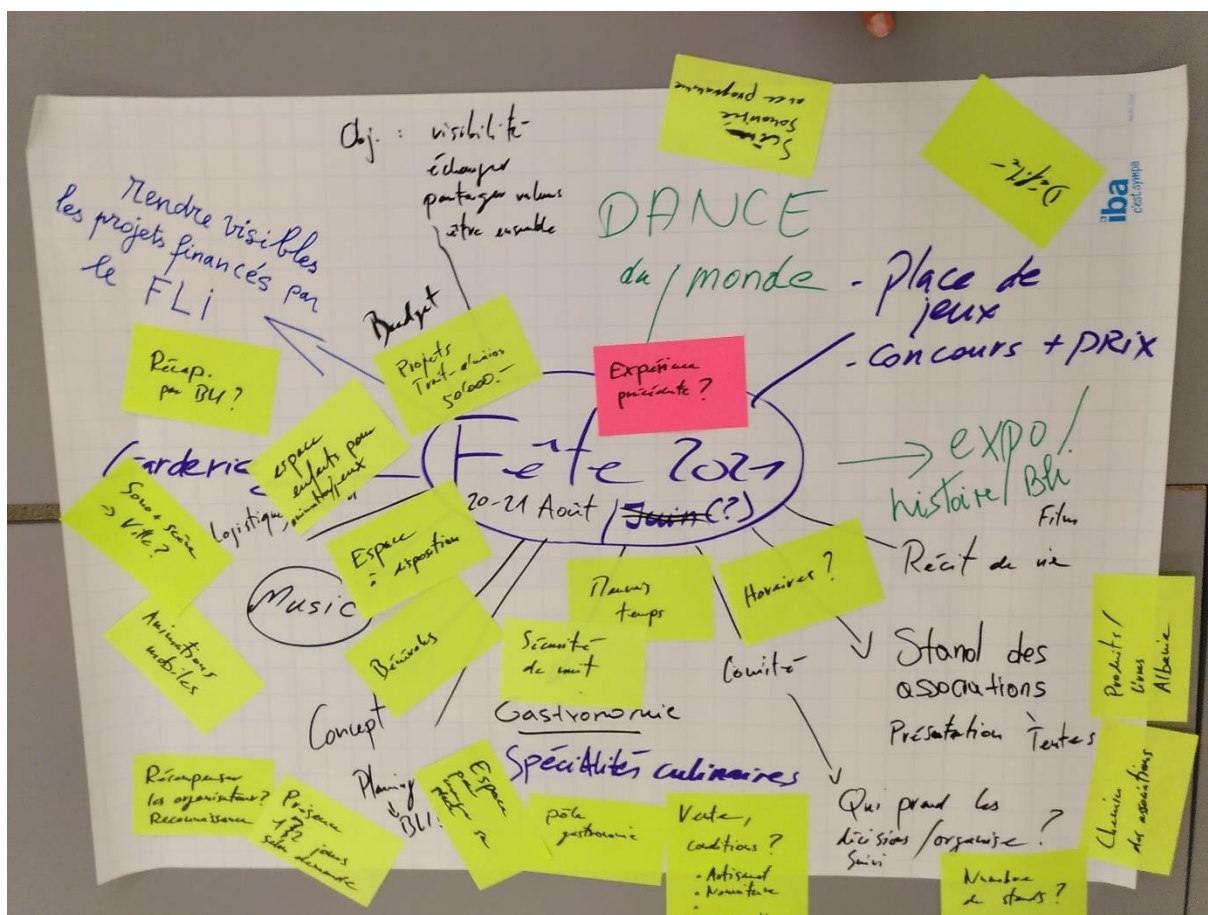 Obj. : visibilité
échanger
partager valeurs
être ensemble
Scène
sonorisée
avec programme
Défilé
iba
c'est sympa
Rendre visibles
les projets financés par
le FLI
DANCE
du monde
- Place de
jeux
- concours + PRIX
Budget
Projets
Trait-d'union
50'000.-
Expérience
précédente ?
Récap.
par BLI ?
Garderie
espace
enfants pour
Fête 2021
20-21 Août / Juin (?)
→ expo/
histoire/BLI
Film
Récit de vie
Sono + scène
→ Ville ?
Logistique
Espace
à disposition
Music
Mauvais
temps
Horaires ?
Animations
mobiles
Bénévoles
Sécurité
de nuit
Comité
Stand des
associations
Présentation
Tentes
Produits/
Livres
Albanie
Concept
Gastronomie
Spécialités culinaires
Planning
→ BLI ?
Récompenser
les organisateurs ?
Reconnaissance
Présence
1 / 2 jours
selon demande
Espace
pour
pôle
gastronomie
Vente,
conditions ?
• Artisanat
• Nourriture
Qui prend les
décisions/organise ?
Suivi
Chemin
des associations
Nombre
de stands ?